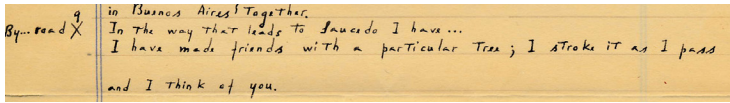 in Buenos Aires! Together.
9
By... road X In the way that leads to Saucedo I have...
I have made friends with a particular Tree; I stroke it as I pass
and I think of you.